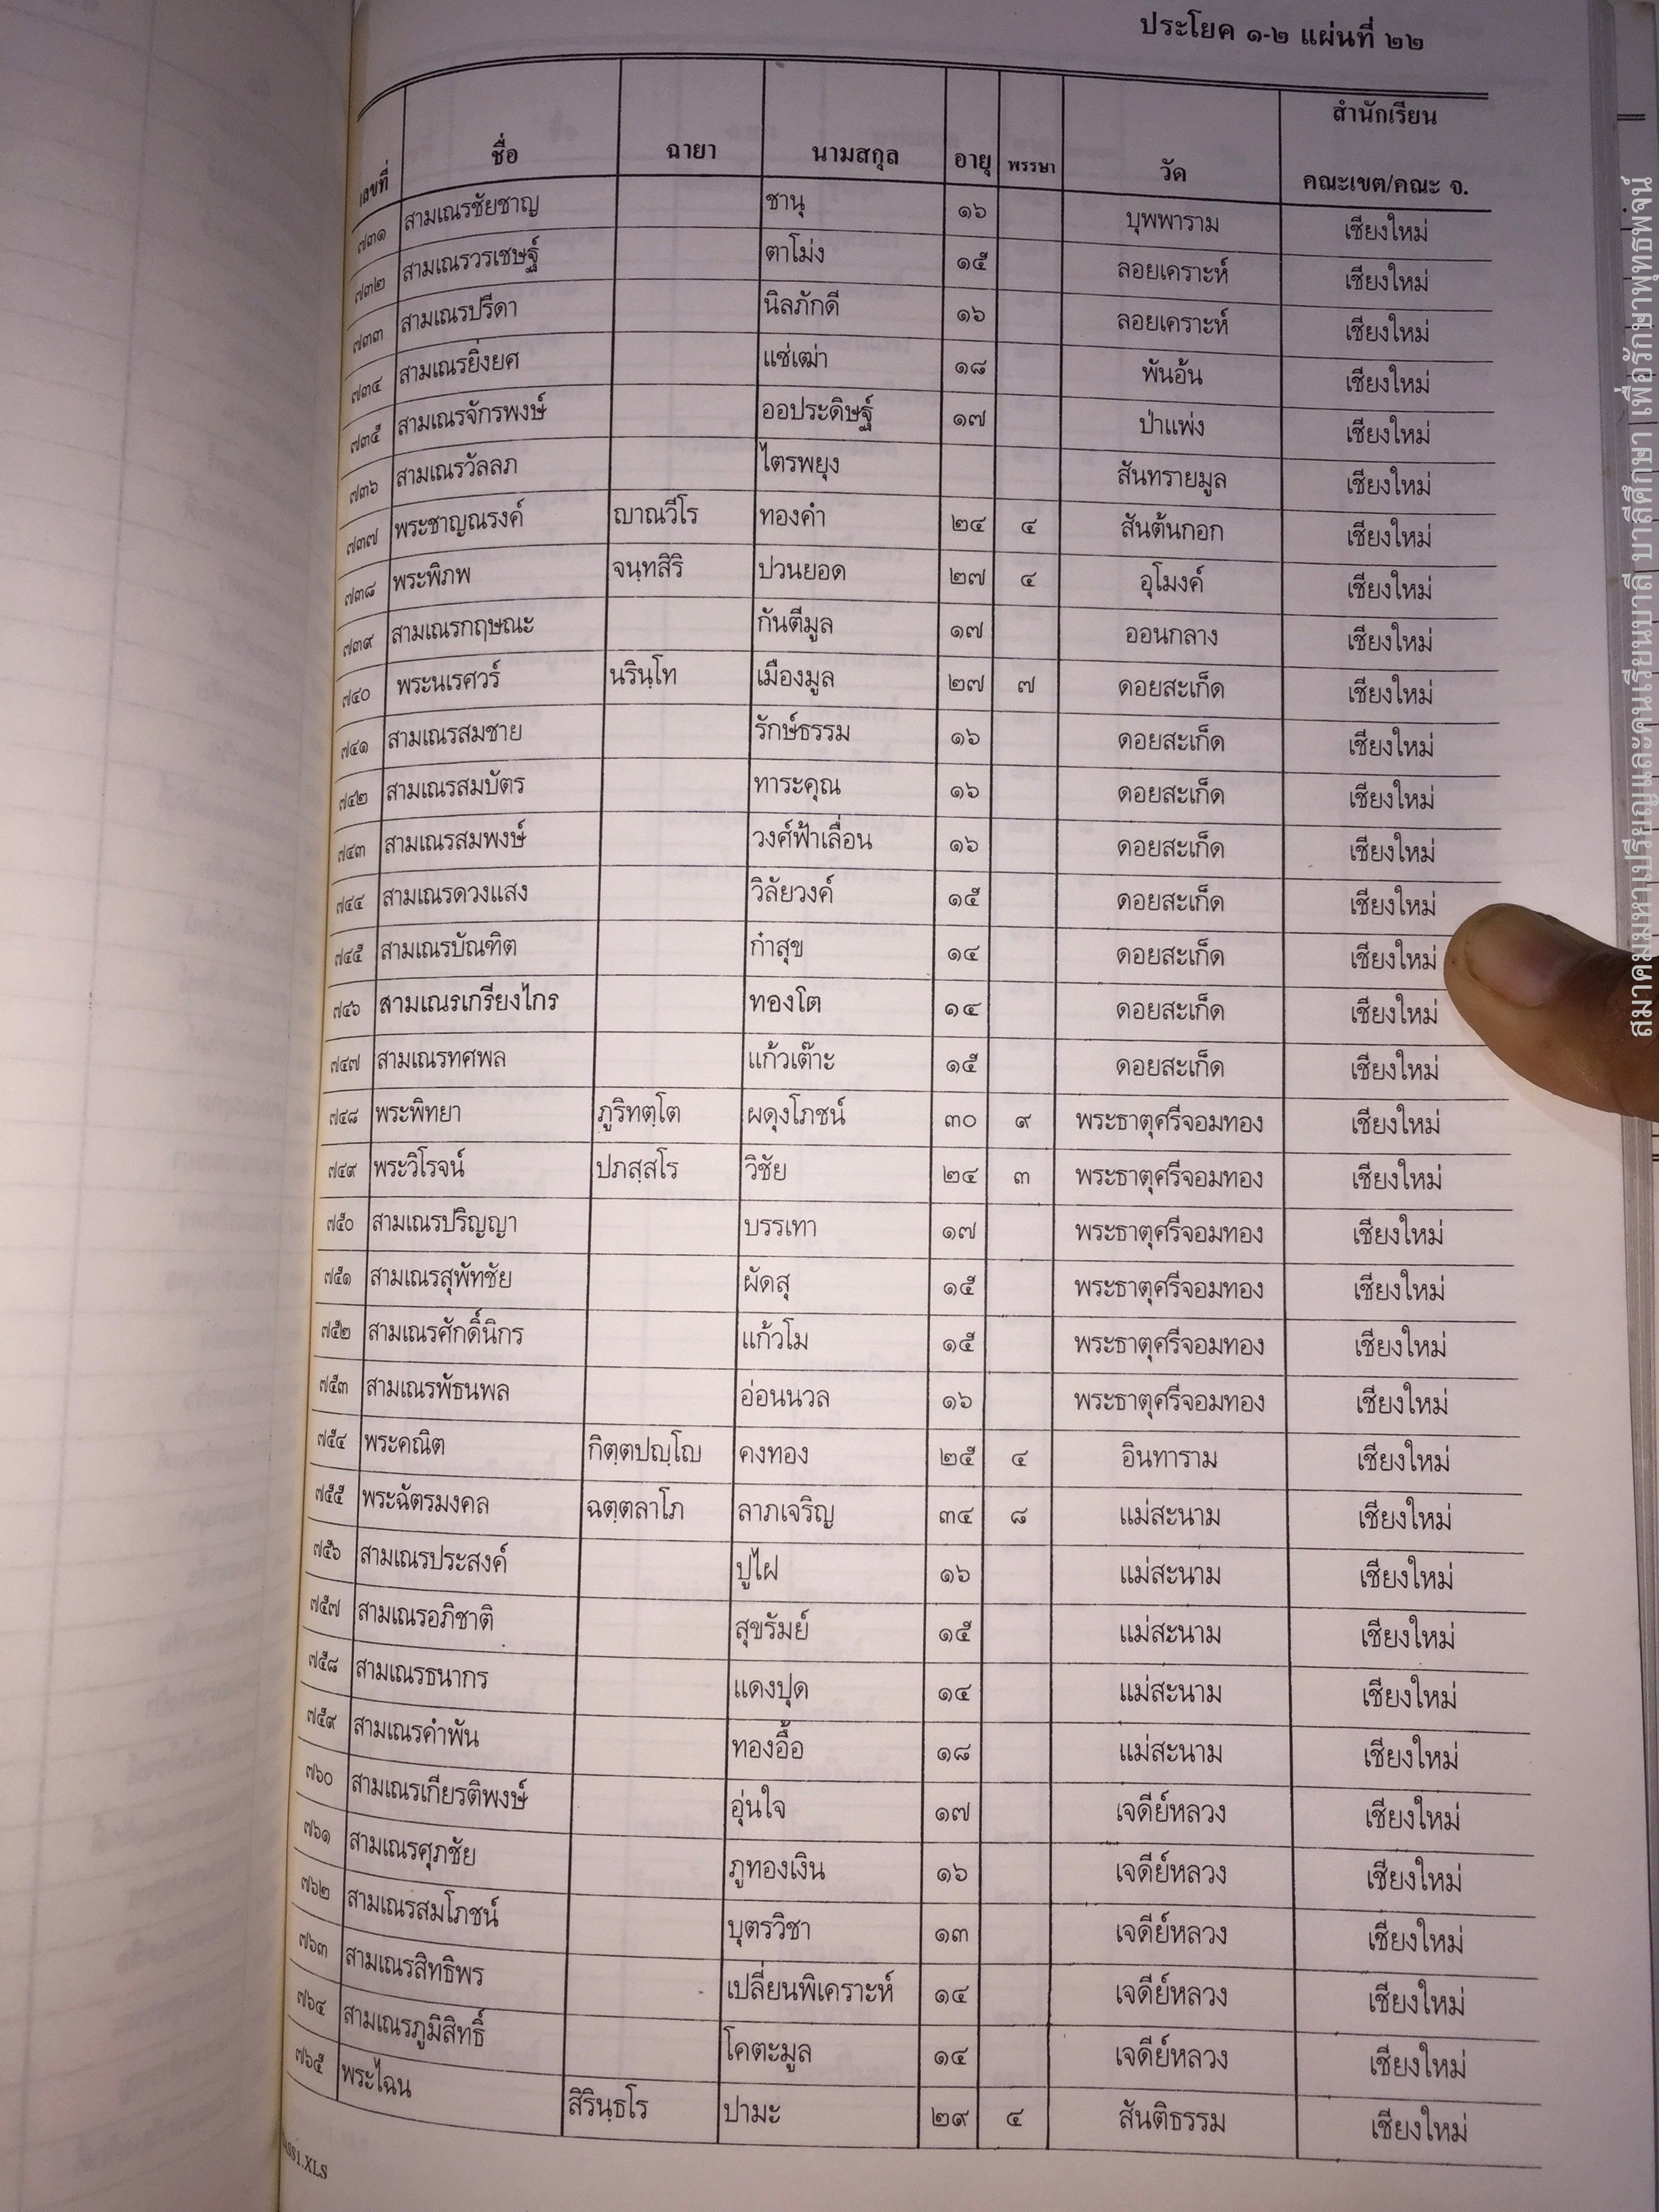 ประโยค ๑-๒ แผ่นที่ ๒๒
เลขที่ ชื่อ ฉายา นามสกุล อายุ พรรษา วัด สำนักเรียน คณะเขต/คณะ จ.
๗๓๑ สามเณรชัยชาญ ชานุ ๑๖ บุพพาราม เชียงใหม่
๗๓๒ สามเณรวรเชษฐ์ ตาโม่ง ๑๕ ลอยเคราะห์ เชียงใหม่
๗๓๓ สามเณรปรีดา นิลภักดี ๑๖ ลอยเคราะห์ เชียงใหม่
๗๓๔ สามเณรยิ่งยศ แซ่เฒ่า ๑๘ พันอ้น เชียงใหม่
๗๓๕ สามเณรจักรพงษ์ ออประดิษฐ์ ๑๗ ป่าแพ่ง เชียงใหม่
๗๓๖ สามเณรวัลลภ ไตรพยุง สันทรายมูล เชียงใหม่
๗๓๗ พระชาญณรงค์ ญาณวีโร ทองคำ ๒๔ ๔ สันต้นกอก เชียงใหม่
๗๓๘ พระพิภพ จนฺทสิริ ปวนยอด ๒๗ ๔ อุโมงค์ เชียงใหม่
๗๓๙ สามเณรกฤษณะ กันตีมูล ๑๗ ออนกลาง เชียงใหม่
๗๔๐ พระนเรศวร์ นรินฺโท เมืองมูล ๒๗ ๗ ดอยสะเก็ด เชียงใหม่
๗๔๑ สามเณรสมชาย รักษ์ธรรม ๑๖ ดอยสะเก็ด เชียงใหม่
๗๔๒ สามเณรสมบัตร ทาระคุณ ๑๖ ดอยสะเก็ด เชียงใหม่
๗๔๓ สามเณรสมพงษ์ วงศ์ฟ้าเลื่อน ๑๖ ดอยสะเก็ด เชียงใหม่
๗๔๔ สามเณรดวงแสง วิลัยวงค์ ๑๕ ดอยสะเก็ด เชียงใหม่
๗๔๕ สามเณรบัณฑิต ก๋าสุข ๑๔ ดอยสะเก็ด เชียงใหม่
๗๔๖ สามเณรเกรียงไกร ทองโต ๑๔ ดอยสะเก็ด เชียงใหม่
๗๔๗ สามเณรทศพล แก้วเต๊าะ ๑๕ ดอยสะเก็ด เชียงใหม่
๗๔๘ พระพิทยา ภูริทตฺโต ผดุงโภชน์ ๓๐ ๙ พระธาตุศรีจอมทอง เชียงใหม่
๗๔๙ พระวิโรจน์ ปภสฺสโร วิชัย ๒๔ ๓ พระธาตุศรีจอมทอง เชียงใหม่
๗๕๐ สามเณรปริญญา บรรเทา ๑๗ พระธาตุศรีจอมทอง เชียงใหม่
๗๕๑ สามเณรสุพัทชัย ผัดสุ ๑๕ พระธาตุศรีจอมทอง เชียงใหม่
๗๕๒ สามเณรศักดิ์นิกร แก้วโม ๑๕ พระธาตุศรีจอมทอง เชียงใหม่
๗๕๓ สามเณรพัธนพล อ่อนนวล ๑๖ พระธาตุศรีจอมทอง เชียงใหม่
๗๕๔ พระคณิต กิตฺตปญฺโญ คงทอง ๒๕ ๔ อินทาราม เชียงใหม่
๗๕๕ พระฉัตรมงคล ฉตฺตลาโภ ลาภเจริญ ๓๔ ๘ แม่สะนาม เชียงใหม่
๗๕๖ สามเณรประสงค์ ปูไฝ ๑๖ แม่สะนาม เชียงใหม่
๗๕๗ สามเณรอภิชาติ สุขรัมย์ ๑๕ แม่สะนาม เชียงใหม่
๗๕๘ สามเณรธนากร แดงปุด ๑๔ แม่สะนาม เชียงใหม่
๗๕๙ สามเณรคำพัน ทองอื้อ ๑๘ แม่สะนาม เชียงใหม่
๗๖๐ สามเณรเกียรติพงษ์ อุ่นใจ ๑๗ เจดีย์หลวง เชียงใหม่
๗๖๑ สามเณรศุภชัย ภูทองเงิน ๑๖ เจดีย์หลวง เชียงใหม่
๗๖๒ สามเณรสมโภชน์ บุตรวิชา ๑๓ เจดีย์หลวง เชียงใหม่
๗๖๓ สามเณรสิทธิพร เปลี่ยนพิเคราะห์ ๑๔ เจดีย์หลวง เชียงใหม่
๗๖๔ สามเณรภูมิสิทธิ์ โคตะมูล ๑๔ เจดีย์หลวง เชียงใหม่
๗๖๕ พระไฉน สิรินฺธโร ปามะ ๒๙ ๔ สันติธรรม เชียงใหม่
สมาคมมหาเปรียญและคนเรียนบาลี บาลีศึกษา เพื่อรักษาพุทธพจน์